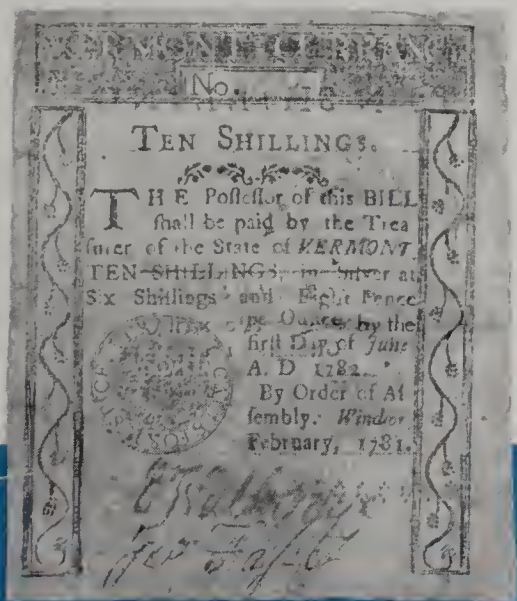 VERMONT CURRENCY.
No.
TEN SHILLINGS.
THE Poſſeſſor of this BILL
ſhall be paid by the Trea
ſurer of the State of VERMONT,
TEN SHILLINGS, in Silver at
Six Shillings and Eight Pence
Ounce, by the
firſt Day of June
A. D 1782.
By Order of Aſ
ſembly. Windſor
February, 1781.